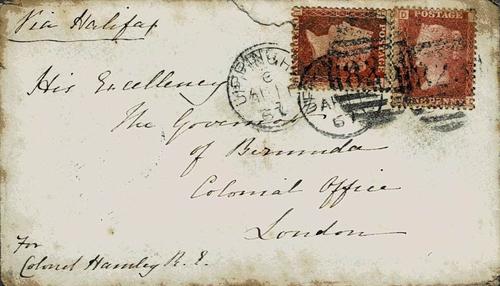 Via Halifax
POSTAGE
D
ONE PENNY
UPPINGH
C
AP
67
AP
67
His Excellency
The Governor
of Bermuda
Colonial Office
London
For
Colonel Hamley R. E.